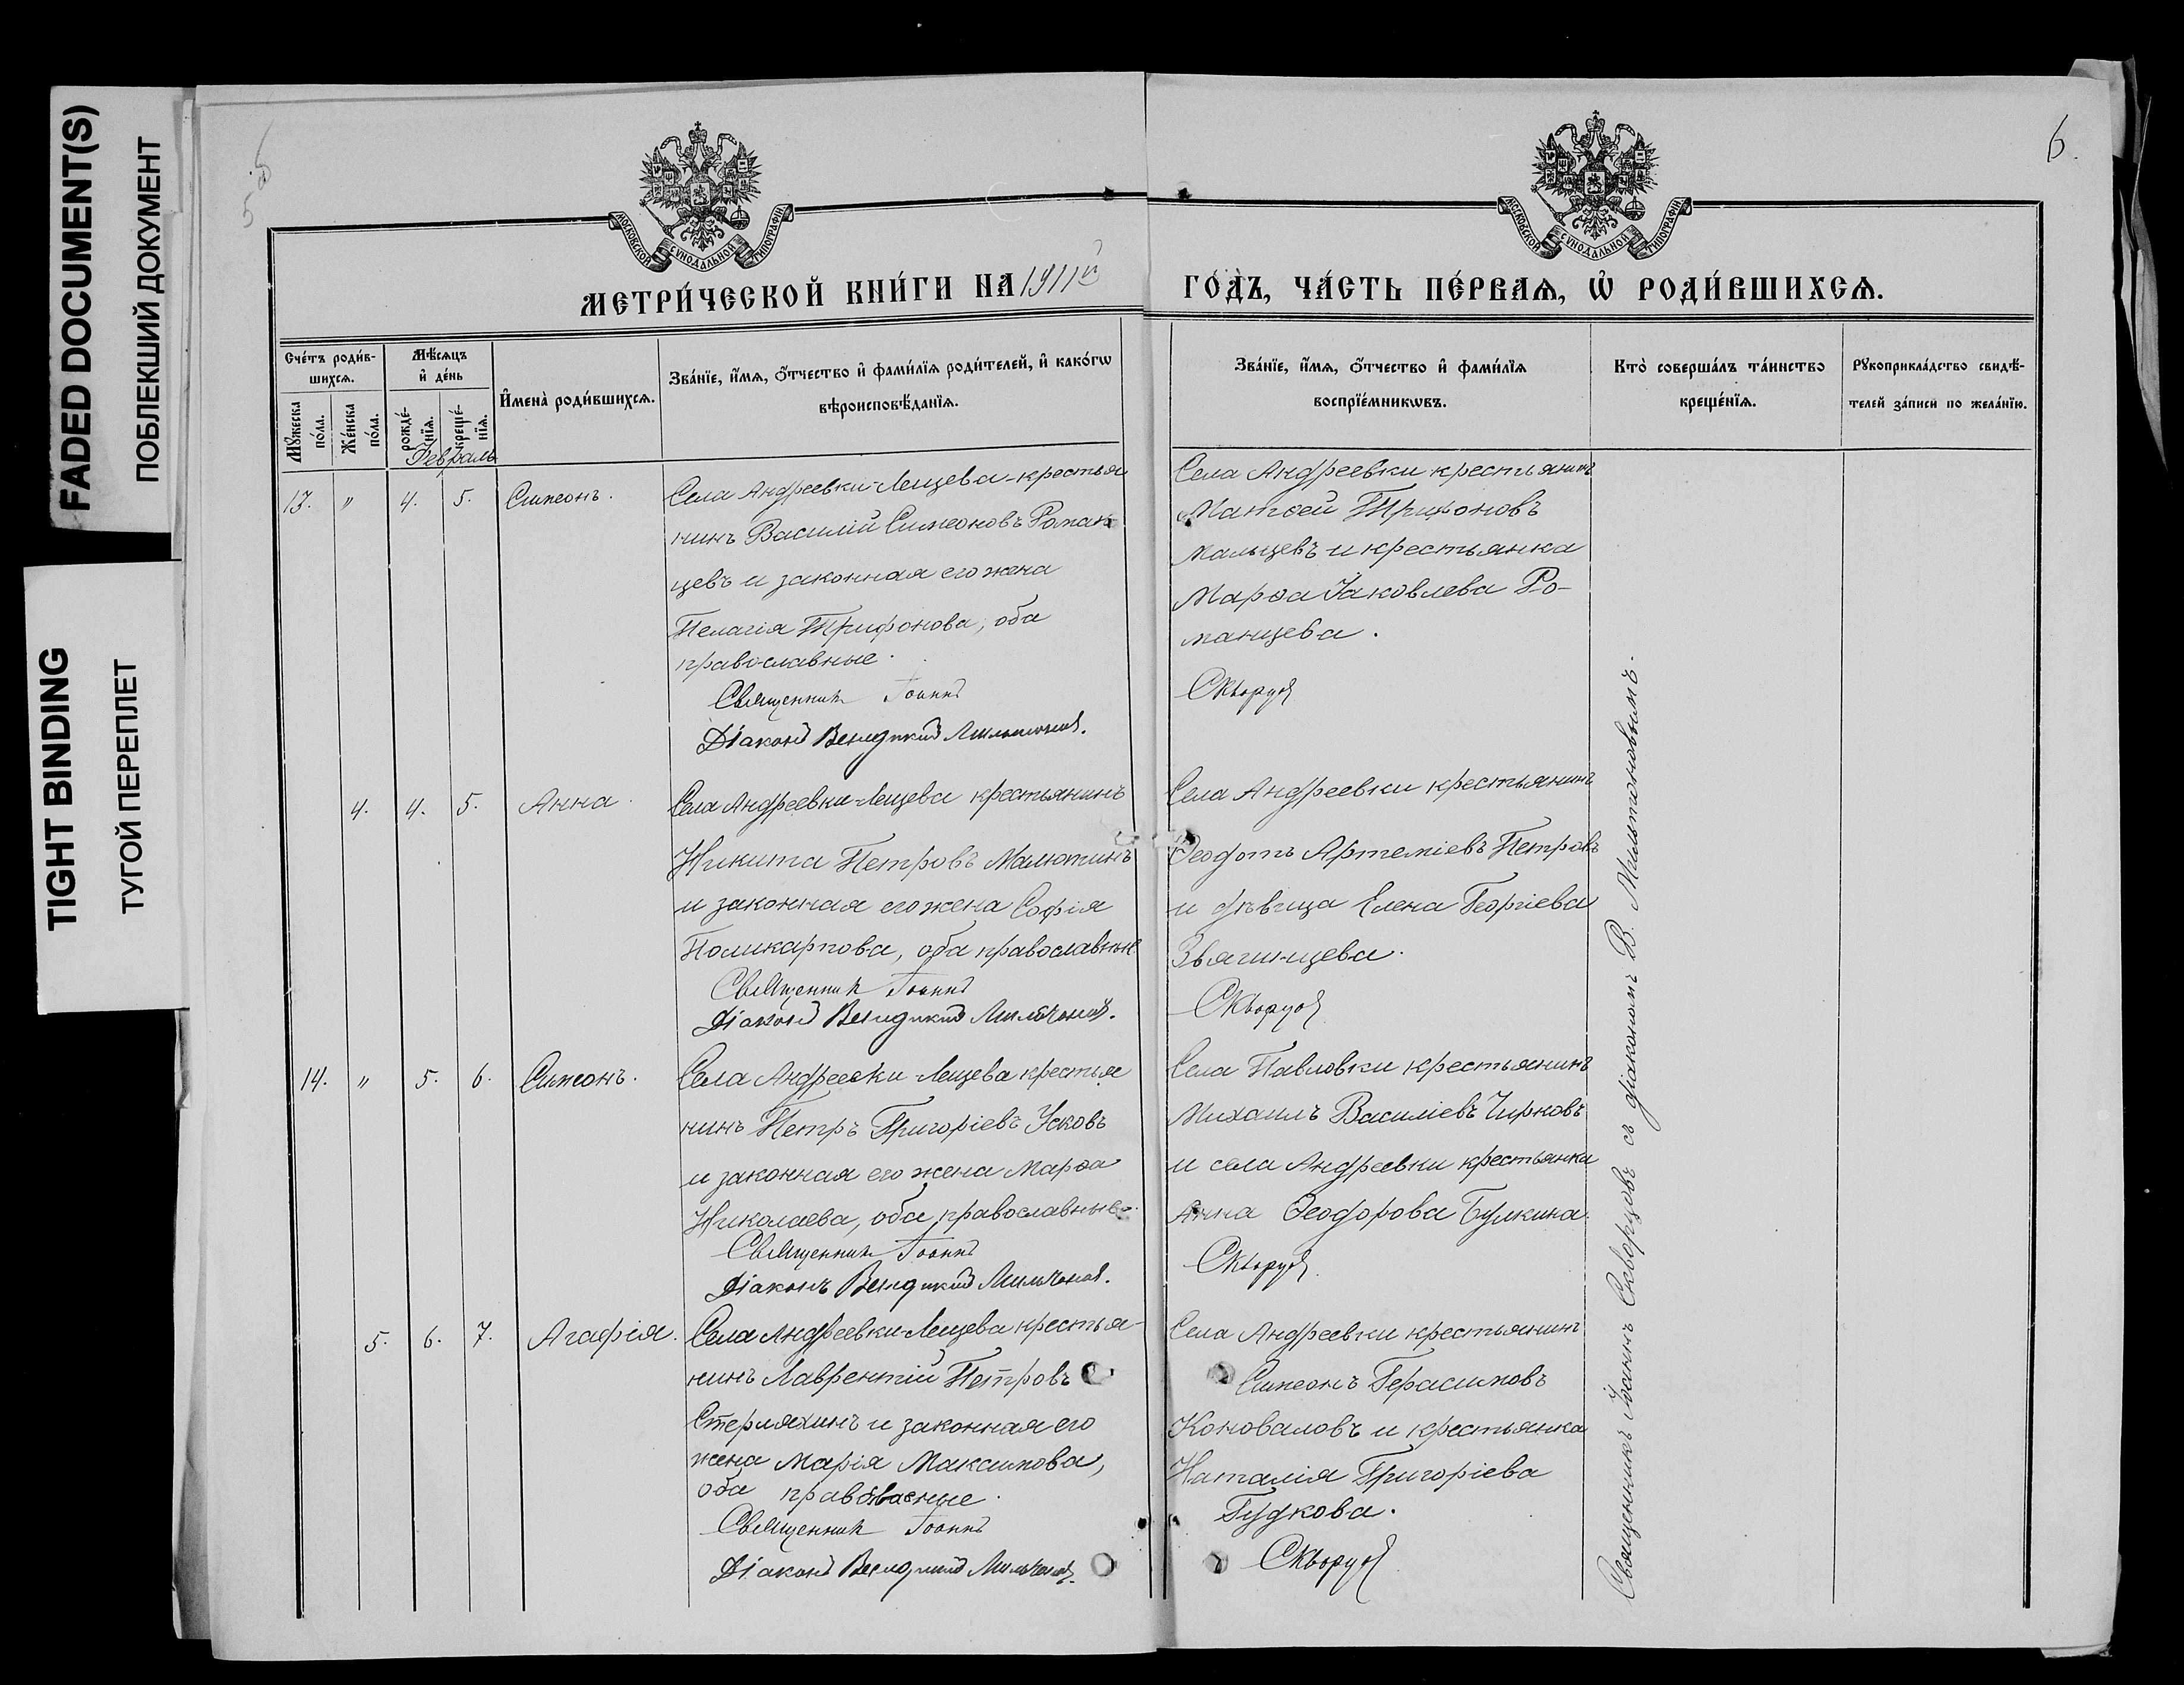 FADED DOCUMENT(S)
ПОБЛЕКШИЙ ДОКУМЕНТ
TIGHT BINDING
ТУГОЙ ПЕРЕПЛЕТ
6.
МОСКОВСКОЙ СУНОДАЛЬНОЙ ТИПОГРАФІИ
МОСКОВСКОЙ СУНОДАЛЬНОЙ ТИПОГРАФІИ
МЕТРИ́ЧЕСКОЙ КНИ́ГИ НА 1911й ГО́ДЪ, ЧА́СТЬ ПЕ́РВАѦ, Ѡ҆ РОДИ́ВШИХСѦ.
Сче́тъ роди́в-
шихсѧ.
Мꙋ́жеска по́ла.
Же́нска по́ла.
Мѣ́сѧцъ
и҆ де́нь
рожде́-
нїѧ.
креще́-
нїѧ.
И҆мена̀ роди́вшихсѧ.
Зва́нїе, и҆́мѧ, ѻ҆́тчество и҆ фами́лїѧ роди́телей, и҆ како́гѡ
вѣроисповѣ́данїѧ.
Зва́нїе, и҆́мѧ, ѻ҆́тчество и҆ фами́лїѧ
воспрїе́мникѡвъ.
Кто̀ соверша́лъ та́инство
креще́нїѧ.
Рꙋкоприкла́дство свидѣ́-
телей за́писи по жела́нїю.
Февраль
13. " 4. 5. Симеонъ.
Села Андреевки-Лещева-крестья
нинъ Василій Симеоновъ Роман
цевъ и законная его жена
Пелагія Трифонова, оба
православные.
Священникъ Іоаннъ
Діаконъ Венедиктъ Мильтоновъ.
Села Андреевки крестьянинъ
Матѳей Трифоновъ
Мальцевъ и крестьянка
Марѳа Іаковлева Ро-
манцева.
Скворцовъ
4. 4. 5. Анна.
Села Андреевки-Лещева крестьянинъ
Никита Петровъ Малютинъ
и законная его жена Софія
Поликарпова, оба православные
Священникъ Іоаннъ
Діаконъ Венедиктъ Мильтоновъ.
Села Андреевки крестьянинъ
Ѳеодотъ Артеміевъ Петровъ
и дѣвица Елена Георгіева
Звягинцева.
Скворцовъ
14. " 5. 6. Симеонъ.
Села Андреевки-Лещева крестья
нинъ Петръ Григоріевъ Усковъ
и законная его жена Марѳа
Николаева, оба православные.
Священникъ Іоаннъ
Діаконъ Венедиктъ Мильтоновъ.
Села Павловки крестьянинъ
Михаилъ Василіевъ Чирковъ
и села Андреевки крестьянка
Анна Ѳеодорова Булкина.
Скворцовъ
5. 6. 7. Агафія.
Села Андреевки-Лещева крестья-
нинъ Лаврентій Петровъ
Стерляхинъ и законная его
жена Марія Максимова,
оба
Священникъ Іоаннъ
Діаконъ Венедиктъ Мильтоновъ.
Села Андреевки крестьянинъ
Симеонъ Герасимовъ
Коноваловъ и крестьянка
Наталія Григоріева
Гудкова.
Скворцовъ
Священникъ Іоаннъ Скворцовъ съ діакономъ В. Мильтоновымъ.